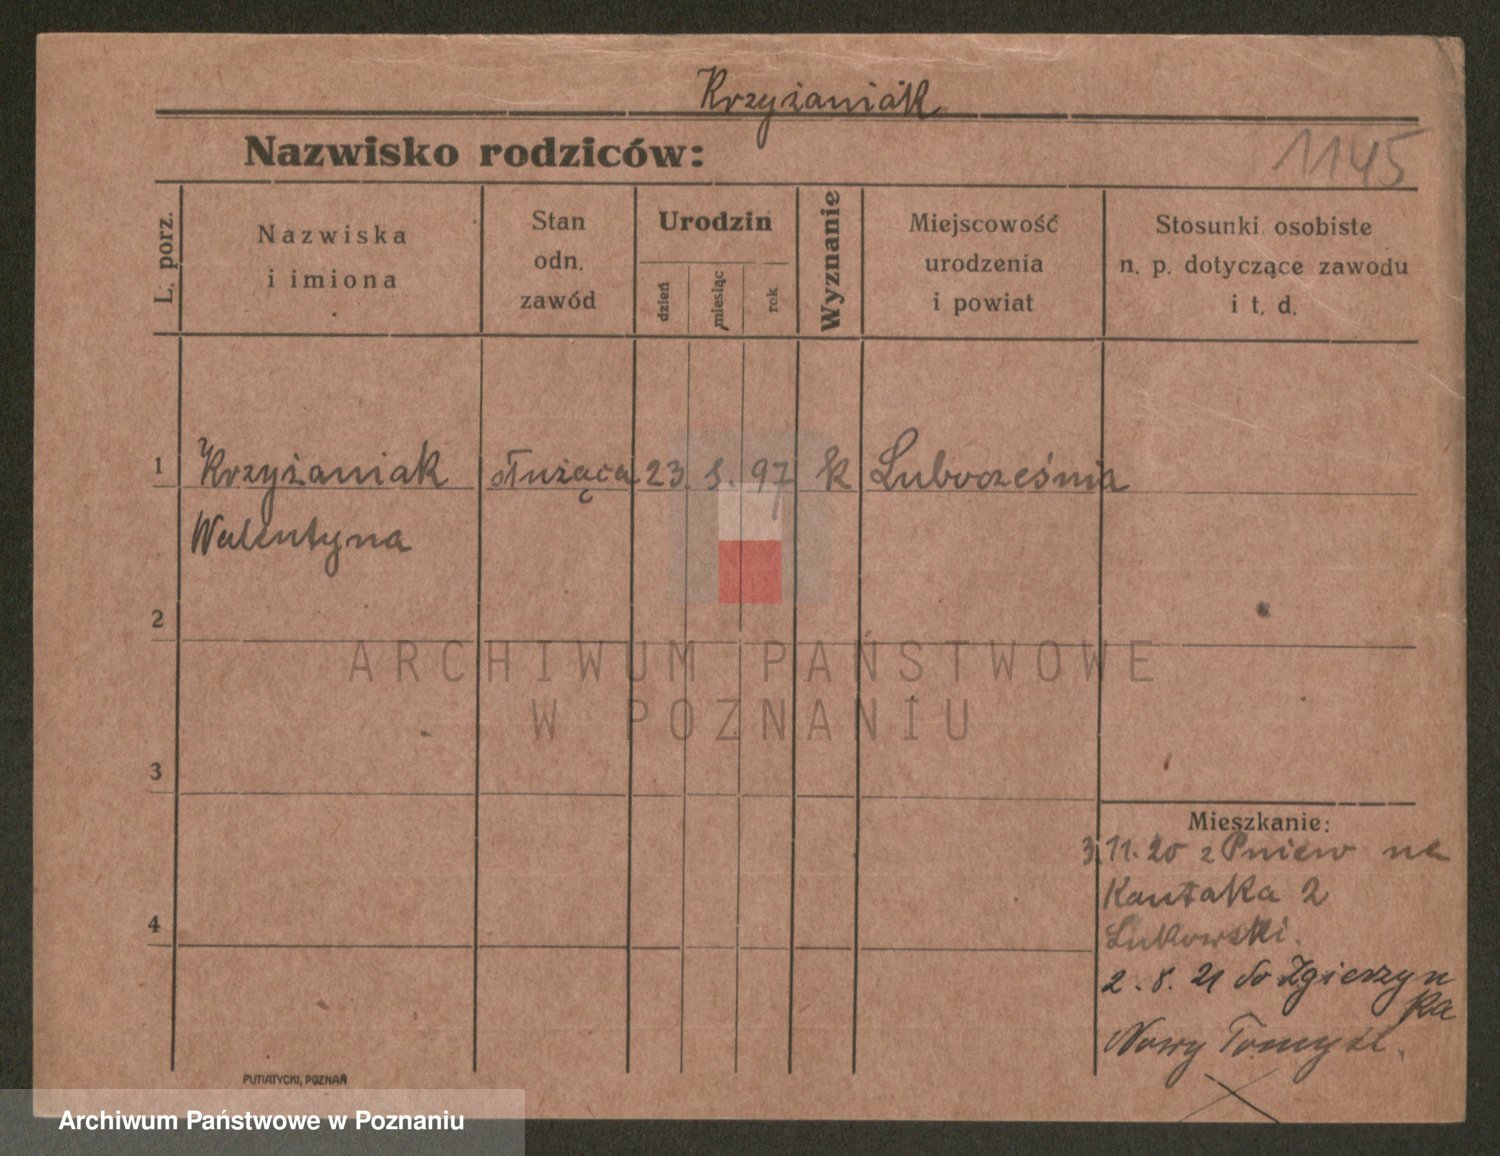 Krzyżaniak
Nazwisko rodziców:
1145
L. porz.
Nazwiska
i imiona
Stan
odn.
zawód
Urodzin
dzień
miesiąc
rok
Wyznanie
Miejscowość
urodzenia
i powiat
Stosunki osobiste
n. p. dotyczące zawodu
i t. d.
1
Krzyżaniak służąca 23. 1. 97 k Lubocześnia
Walentyna
2
ARCHIWUM PAŃSTWOWE
W POZNANIU
3
Mieszkanie:
3.11.20 z Pniew na
Kantaka 2
Lukowski.
4
2. 8. 21 do Zgierzyn
ka
Nowy Tomyśl.
PUTIATYCKI, POZNAŃ
Archiwum Państwowe w Poznaniu